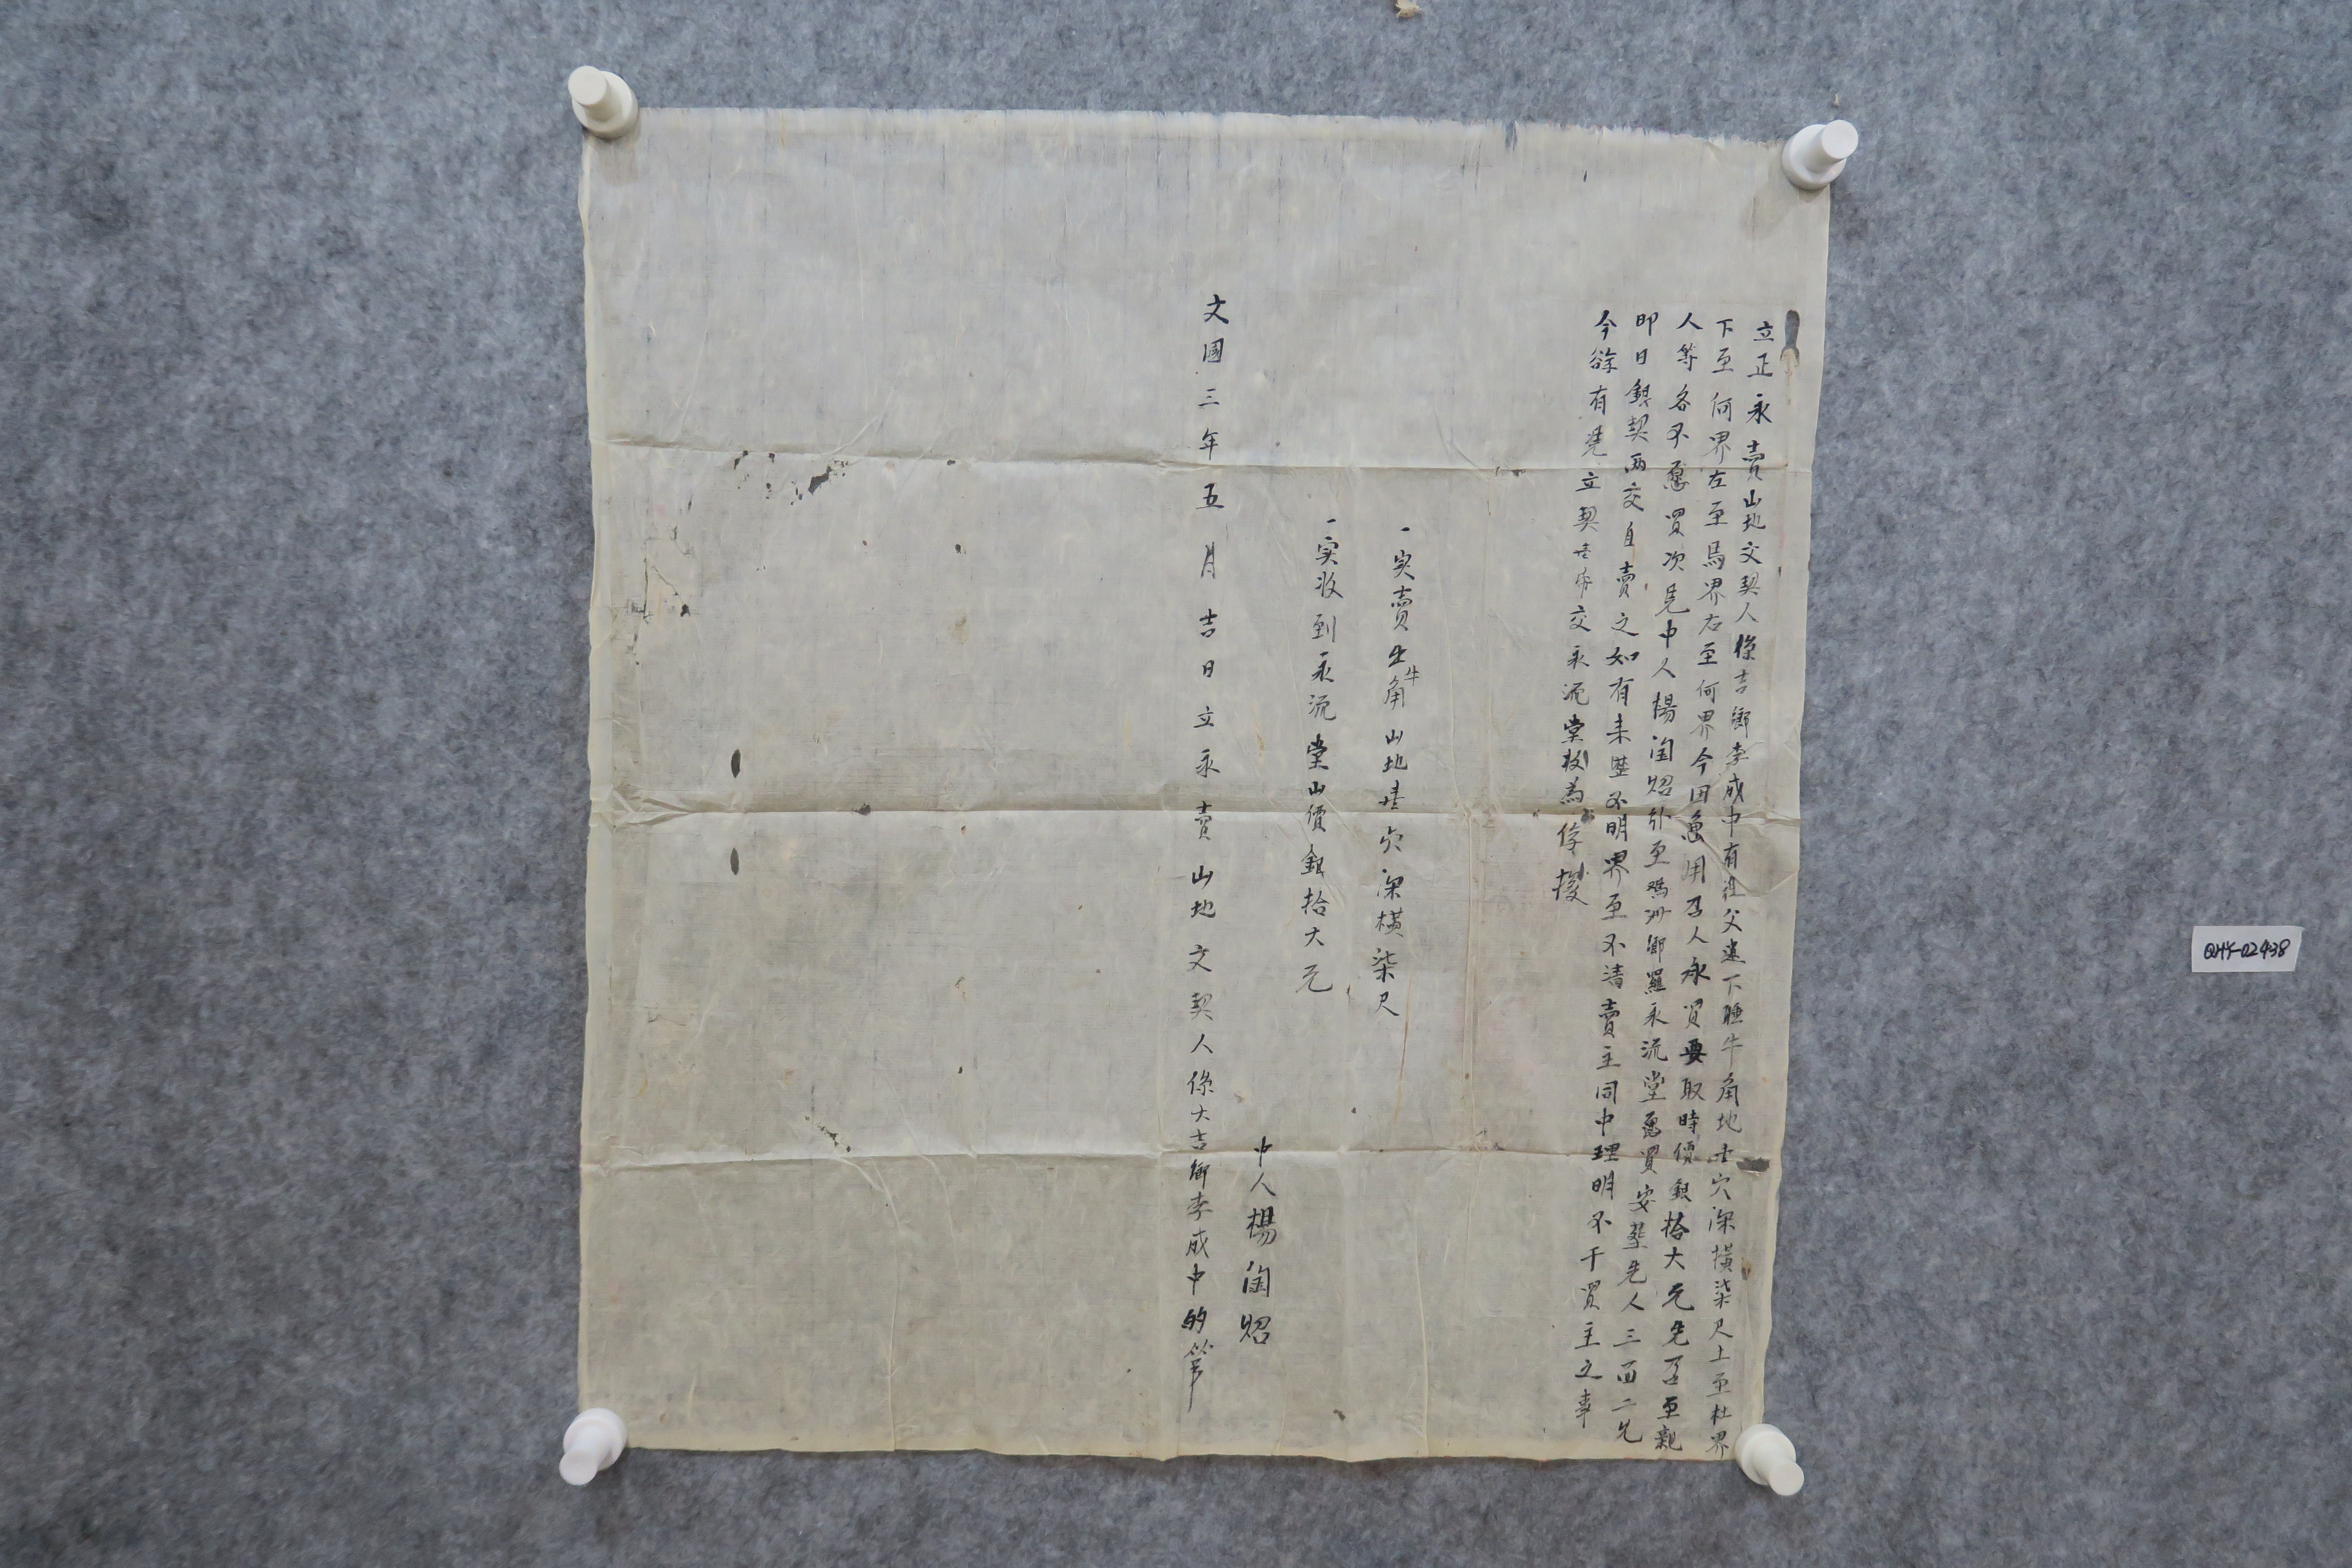 立正永賣山地文契人係吉鄉李成中有祖父遺下睡牛角地壹穴深横柒尺上至杜界
下至何界左至馬界右至何界今因急用召人承買要取時價銀拾大元先召至親
人等各不愿買次凭中人楊閏照引至鴉洲鄉羅永流堂愿買安塟先人三面二允
即日銀契兩交自賣之如有来歷不明界至不清賣主同中理明不干買主之事
今欲有凭立契壹帋交永流堂收為存據
一实賣牛角山地壹穴深横柒尺
一实收到永流堂山價銀拾大元
中人楊閏照
文國三年五月吉日立永賣山地文契人係大吉鄉李成中的筆
QHY-02438